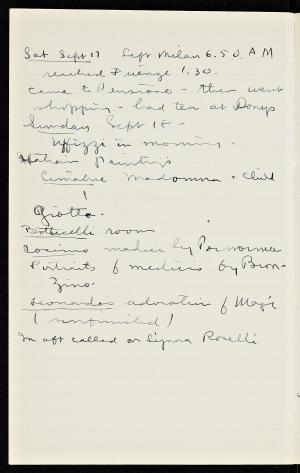 Sat Sept 17 Left Milan 6.50. A M
reached Firenze 1.30.
came to Pensione - then went
shopping - had tea at Doneys
Sunday Sept 18 -
Uffizzi in morning -
Italian Paintings
Cimabue Madonna + Child
Giotto.
Botticelli room
Cosimo medici by Pontormo
Portraits of medicis by Bron-
zino.
Leonardos adoration of Magi
(unfinished)
In aft called on Signora Roselli